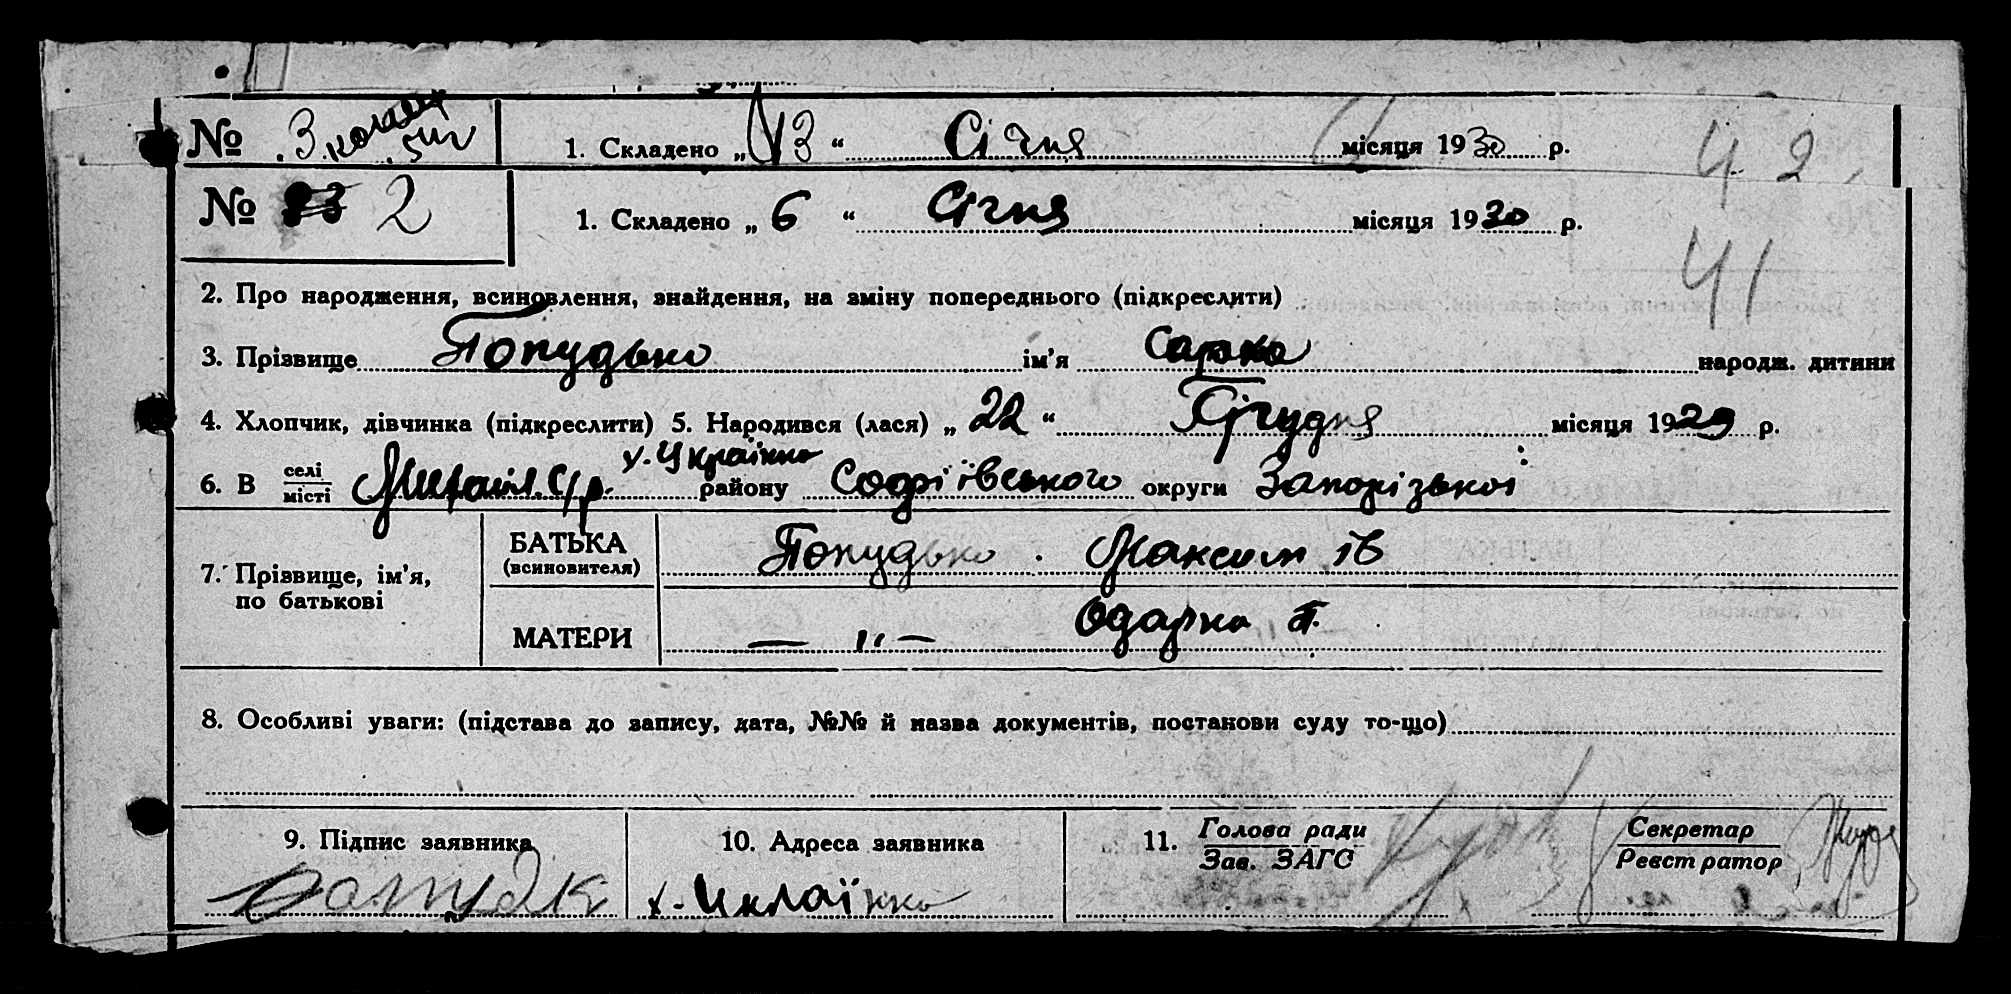 № 3. 1. Складено „13“ Січня місяця 1930 р. 42
№ 2 1. Складено „6“ Січня місяця 1930 р.
41
2. Про народження, всиновлення, знайдення, на зміну попереднього (підкреслити)
3. Прізвище Попудько ім'я народж. дитини
4. Хлопчик, дівчинка (підкреслити) 5. Народився (лася) „22“ Грудня місяця 1929 р.
х. Українка
6. В селі місті Михайл. с/р. району Софіївського округи Запорізької
7. Прізвище, ім'я, по батькові
БАТЬКА (всиновителя) Попудько Максим Ів
МАТЕРИ — „ — Одарка
8. Особливі уваги: (підстава до запису, дата, №№ й назва документів, постанови суду то-що)
9. Підпис заявника 10. Адреса заявника 11. Голова ради Зав. ЗАГС Секретар Реєстратор
х.